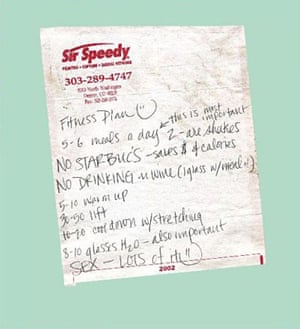 Sir Speedy
PRINTING • COPYING • DIGITAL NETWORK
303-289-4747
Denver, CO
Fitness Plan
this is most
important
5-6 meals a day 2 - are shakes
NO STARBUCS - saves $ & calories
NO DRINKING wine (1 glass w/meal)
5-10 warm up
30-50 lift
10-20 cool down w/stretching
8-10 glasses H2O - also important
SEX - LOTS of it!
2002